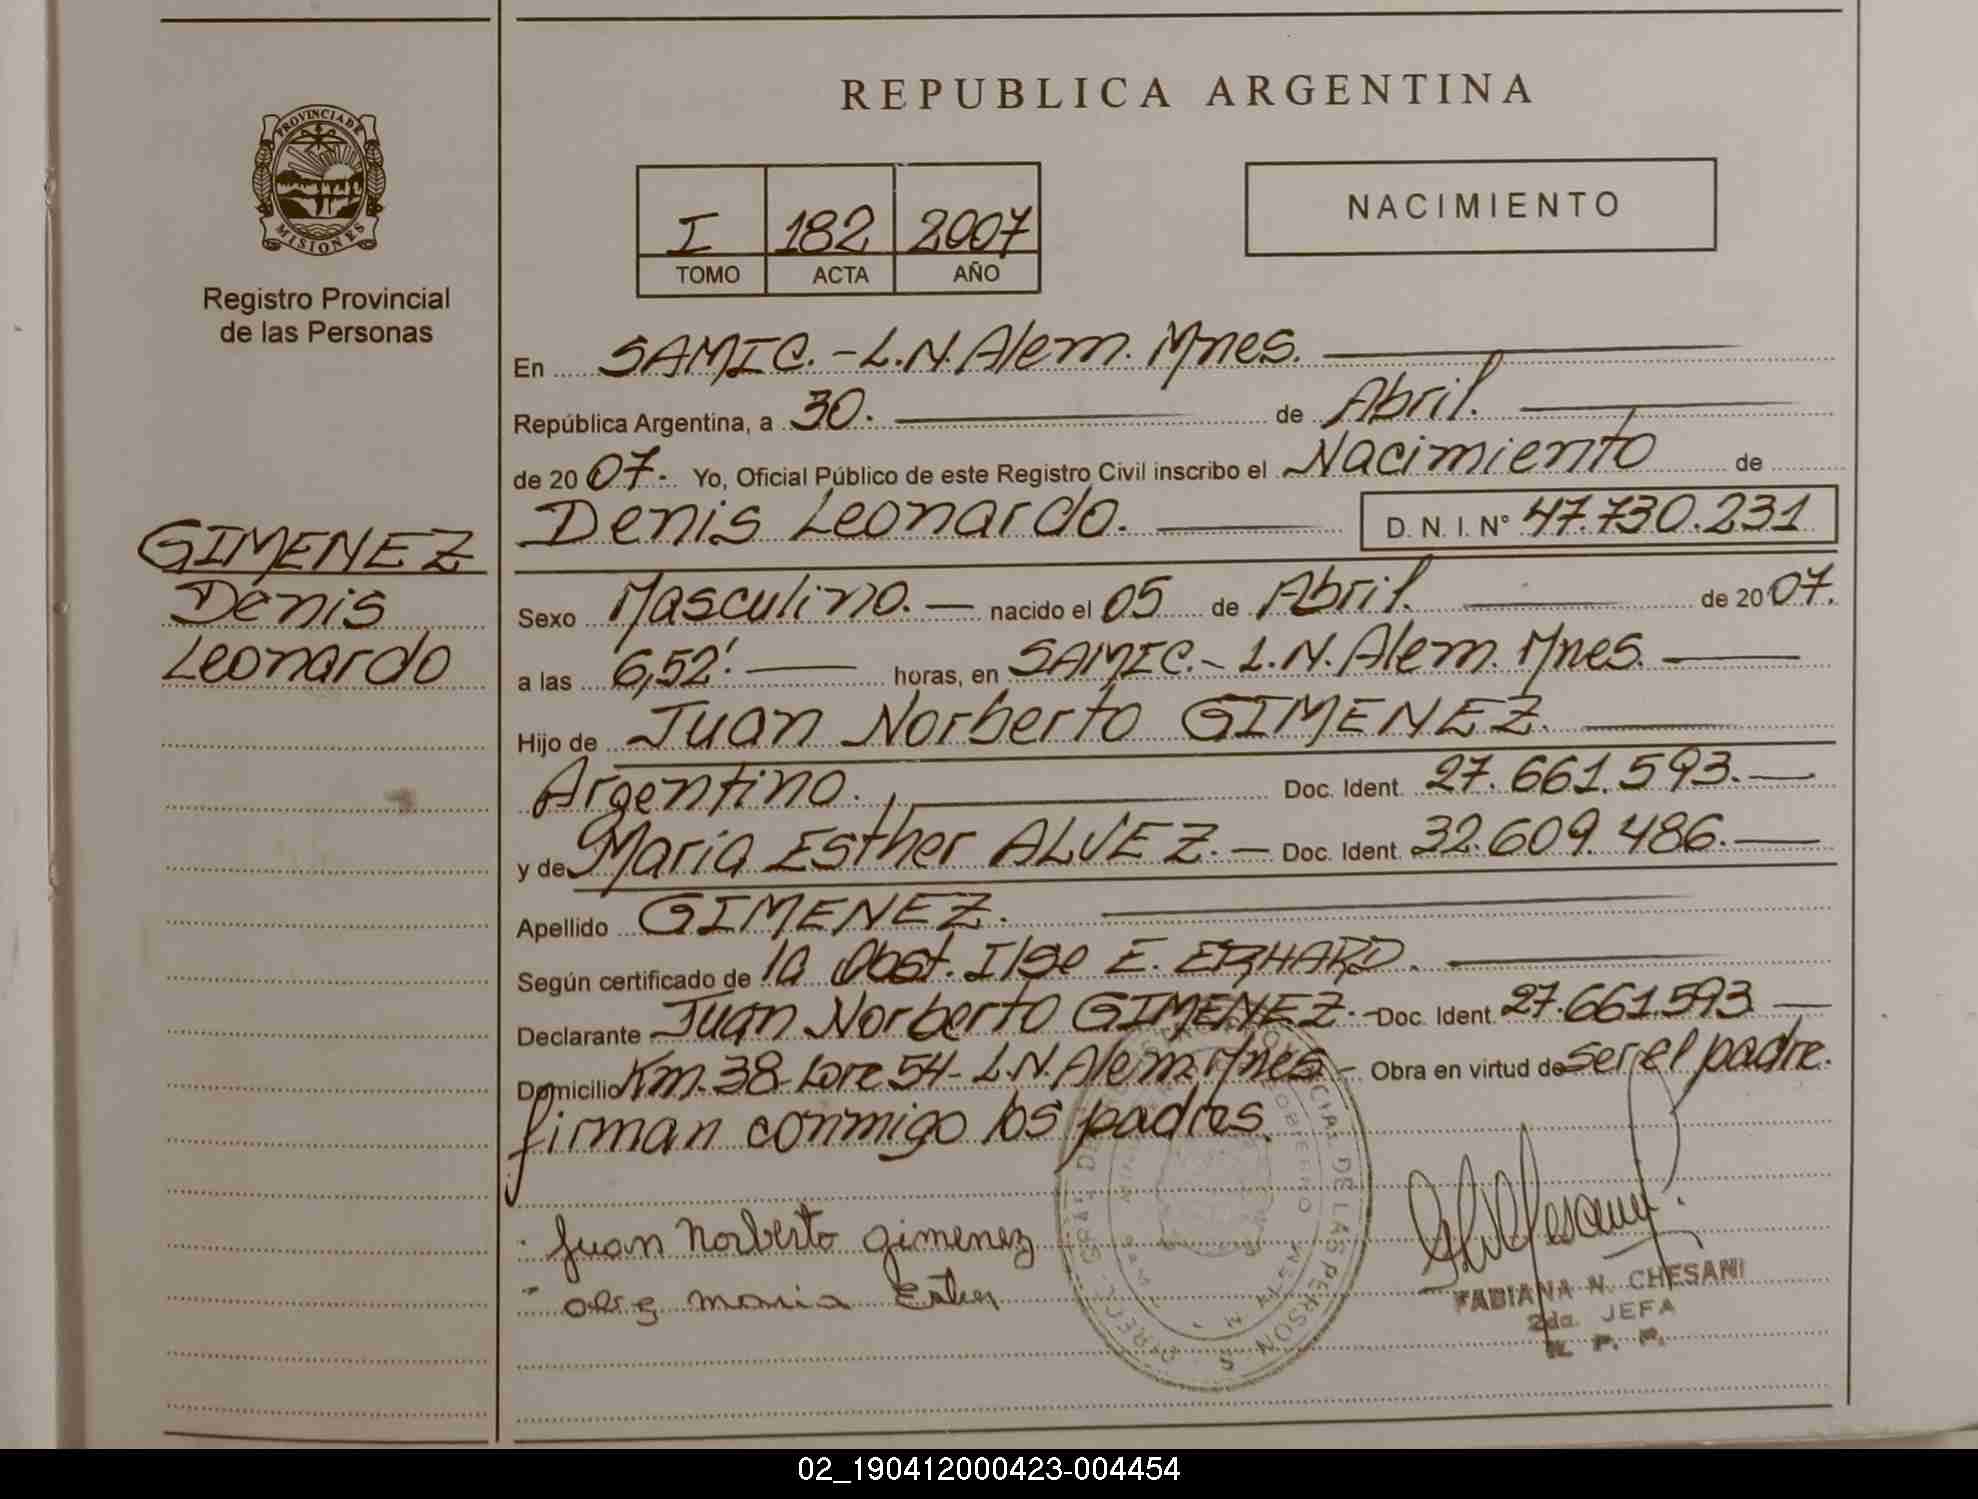 REPUBLICA ARGENTINA
PROVINCIA DE
MISIONES
Registro Provincial
de las Personas
I 182 2007
TOMO ACTA AÑO
NACIMIENTO
En SAMIC.-L.N.Alem. Mnes.
República Argentina, a 30. de Abril.
de 2007. Yo, Oficial Público de este Registro Civil inscribo el Nacimiento de
Denis Leonardo. D. N. I. N° 47.730.231
GIMENEZ
Denis
Leonardo
Sexo Masculino. nacido el 05 de Abril. de 2007.
a las 6,52'. horas, en SAMIC.- L.N.Alem. Mnes.
Hijo de Juan Norberto GIMENEZ.
Argentino. Doc. Ident. 27.661.593.
y de Maria Esther ALVEZ. Doc. Ident. 32.609.486.
Apellido GIMENEZ.
Según certificado de la Obst. Ilse E. ERHARD.
Declarante Juan Norberto GIMENEZ.- Doc. Ident. 27.661.593
Domicilio Km. 38- Lote 54- L.N.Alem. Mnes - Obra en virtud de ser el padre.
firman conmigo los padres.
Juan Norberto Gimenez
maria Ester
FABIANA N. CHESANI
2da. JEFA
R. P. P.
02_190412000423-004454